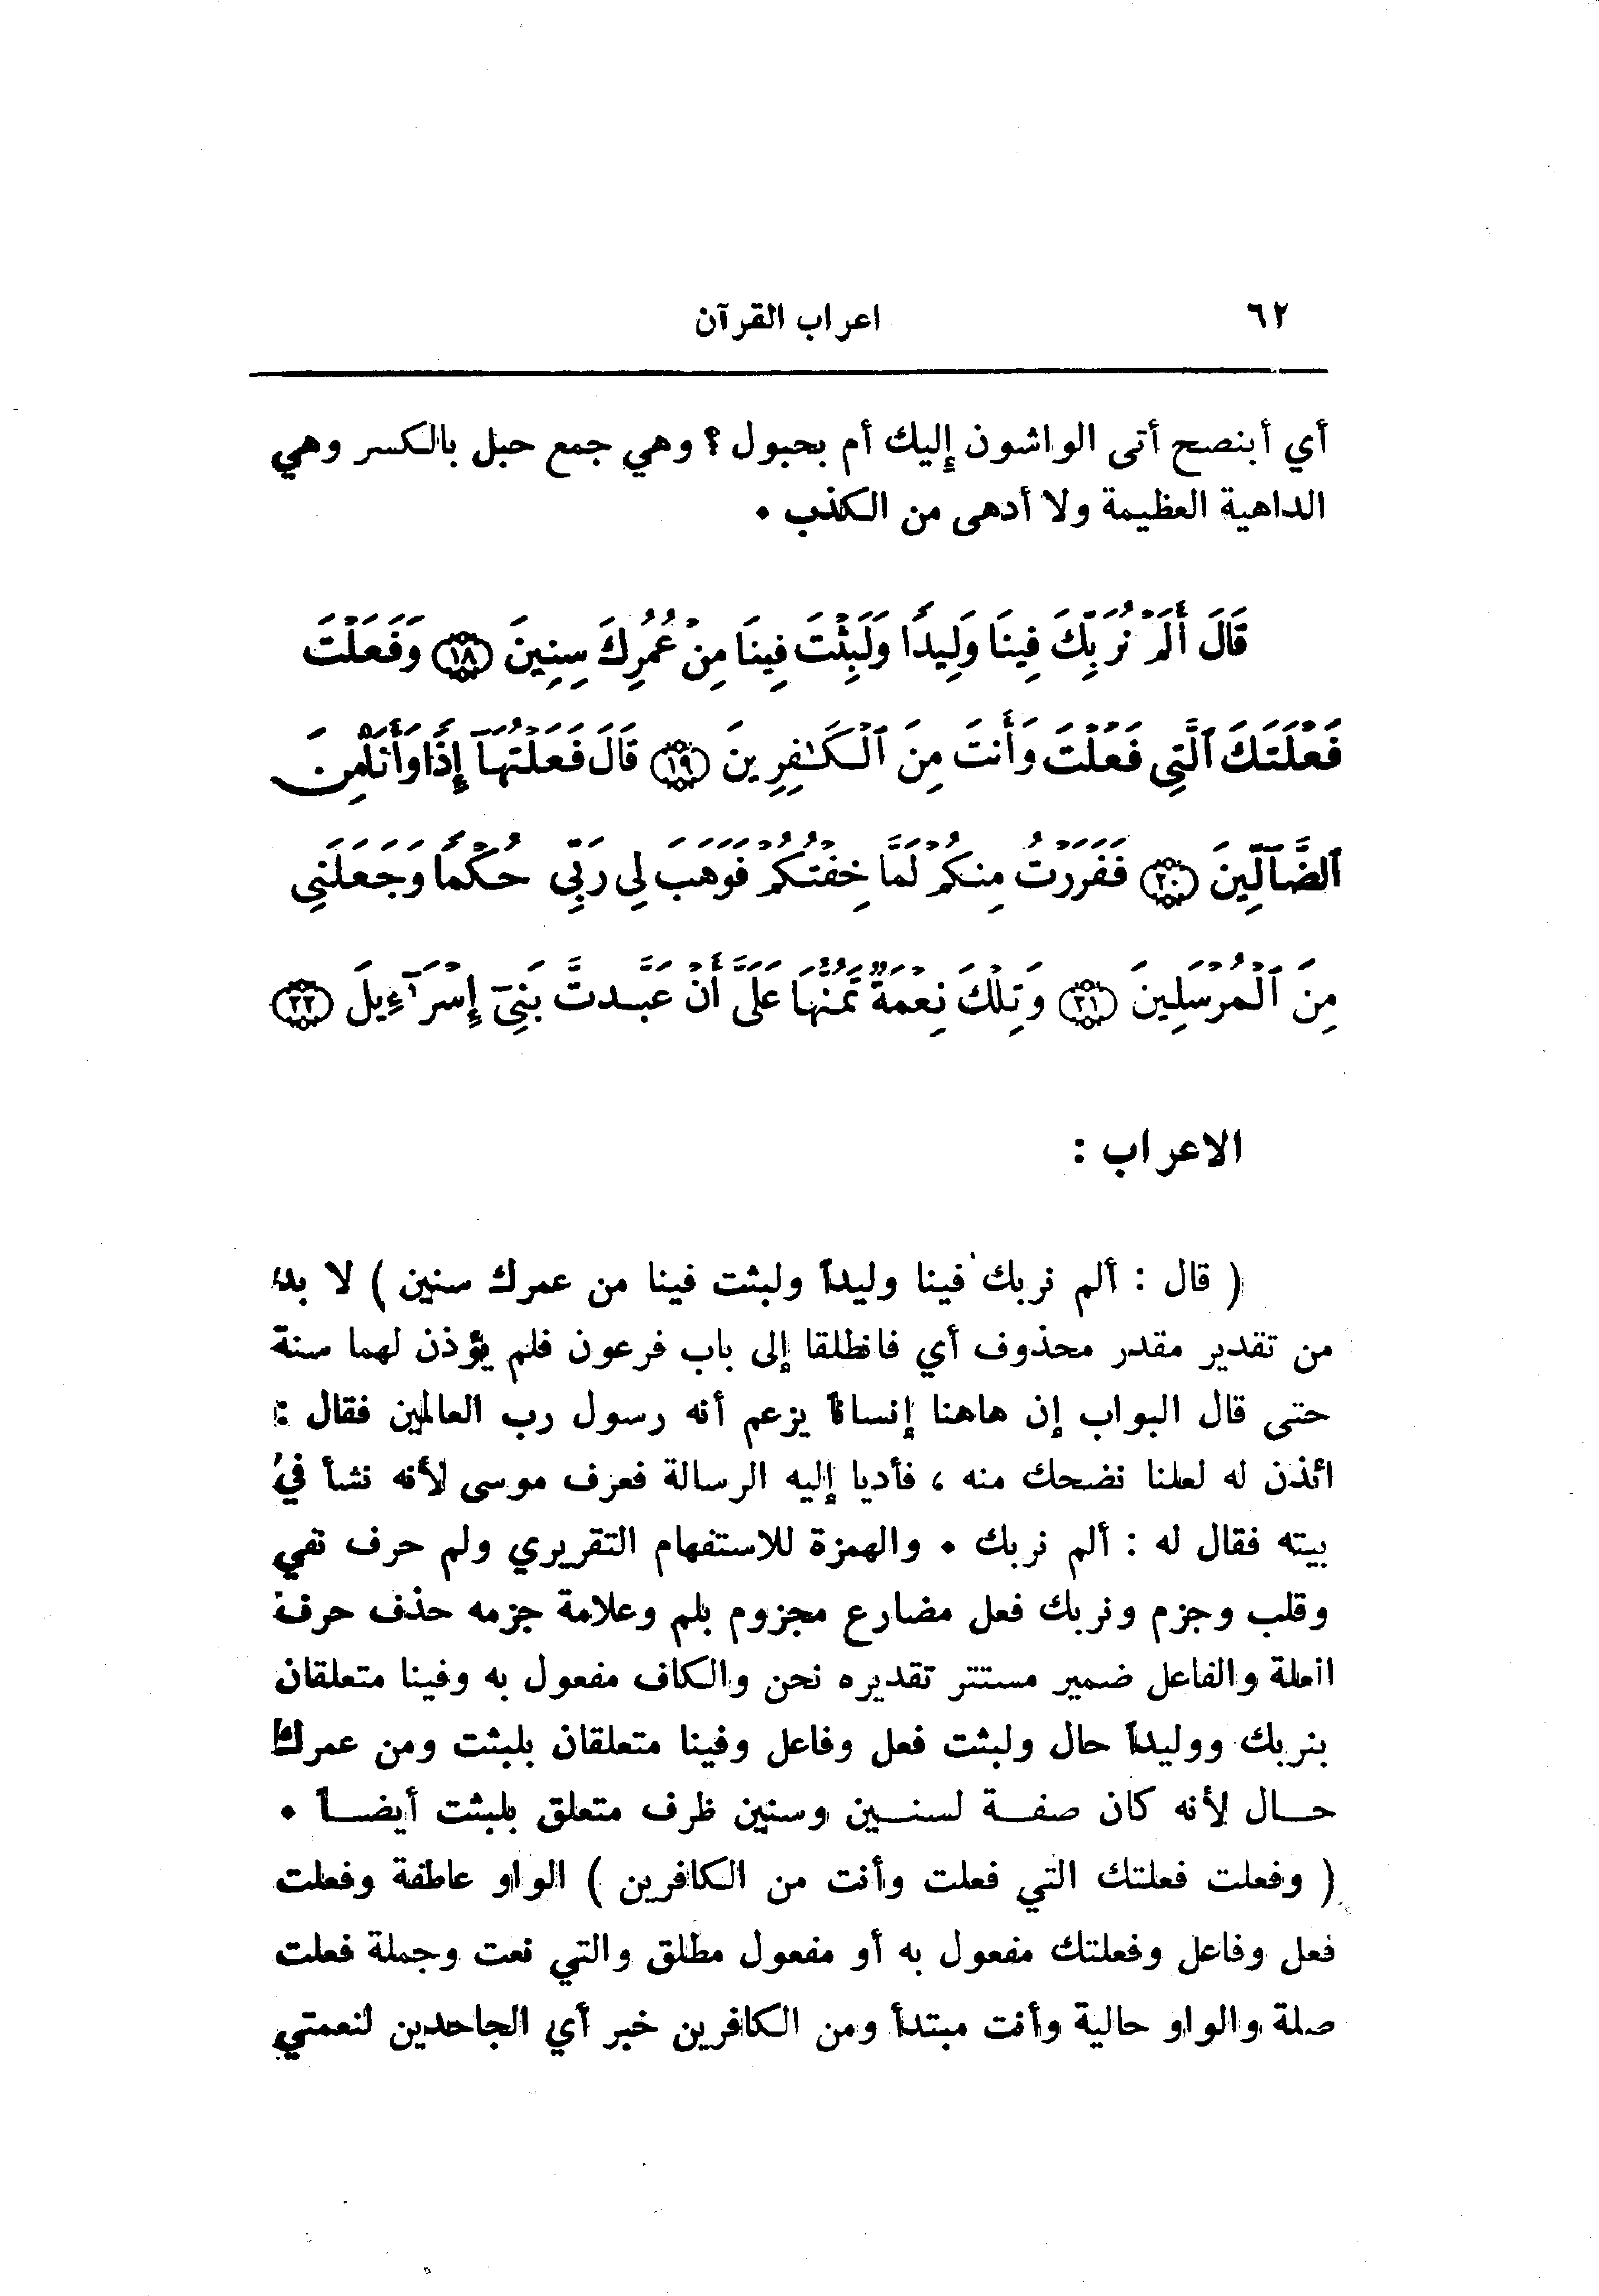 ٦٢ اعراب القرآن
أي أبنصح أتى الواشون إليك أم بحبول ؟ وهي جمع حبل بالكسر وهي
الداهية العظيمة ولا أدهى من الكذب •
قَالَ أَلَمْ نُرَبِّكَ فِينَا وَلِيدًا وَلَبِثْتَ فِينَا مِنْ عُمُرِكَ سِنِينَ ﴿١٨﴾ وَفَعَلْتَ
فَعْلَتَكَ ٱلَّتِي فَعَلْتَ وَأَنتَ مِنَ ٱلْكَـٰفِرِينَ ﴿١٩﴾ قَالَ فَعَلْتُهَآ إِذًا وَأَنَا۠ مِنَ
ٱلضَّآلِّينَ ﴿٢٠﴾ فَفَرَرْتُ مِنكُمْ لَمَّا خِفْتُكُمْ فَوَهَبَ لِي رَبِّي حُكْمًا وَجَعَلَنِي
مِنَ ٱلْمُرْسَلِينَ ﴿٢١﴾ وَتِلْكَ نِعْمَةٌ تَمُنُّهَا عَلَيَّ أَنْ عَبَّدتَّ بَنِيٓ إِسْرَآءِيلَ ﴿٢٢﴾
الاعراب :
( قال : ألم نربك فينا وليداً ولبثت فينا من عمرك سنين ) لا بد
من تقدير مقدر محذوف أي فانطلقا إلى باب فرعون فلم يؤذن لهما سنة
حتى قال البواب إن هاهنا إنساناً يزعم أنه رسول رب العالمين فقال :
ائذن له لعلنا نضحك منه ، فأديا إليه الرسالة فعرف موسى لأنه نشأ في
بيته فقال له : ألم نربك • والهمزة للاستفهام التقريري ولم حرف نفي
وقلب وجزم ونربك فعل مضارع مجزوم بلم وعلامة جزمه حذف حرف
العلة والفاعل ضمير مستتر تقديره نحن والكاف مفعول به وفينا متعلقان
بنربك ووليداً حال ولبثت فعل وفاعل وفينا متعلقان بلبثت ومن عمرك
حــال لأنه كان صفــة لسنــين وسنين ظرف متعلق بلبثت أيضــاً •
( وفعلت فعلتك التي فعلت وأنت من الكافرين ) الواو عاطفة وفعلت
فعل وفاعل وفعلتك مفعول به أو مفعول مطلق والتي نعت وجملة فعلت
صلة والواو حالية وأنت مبتدأ ومن الكافرين خبر أي الجاحدين لنعمتي